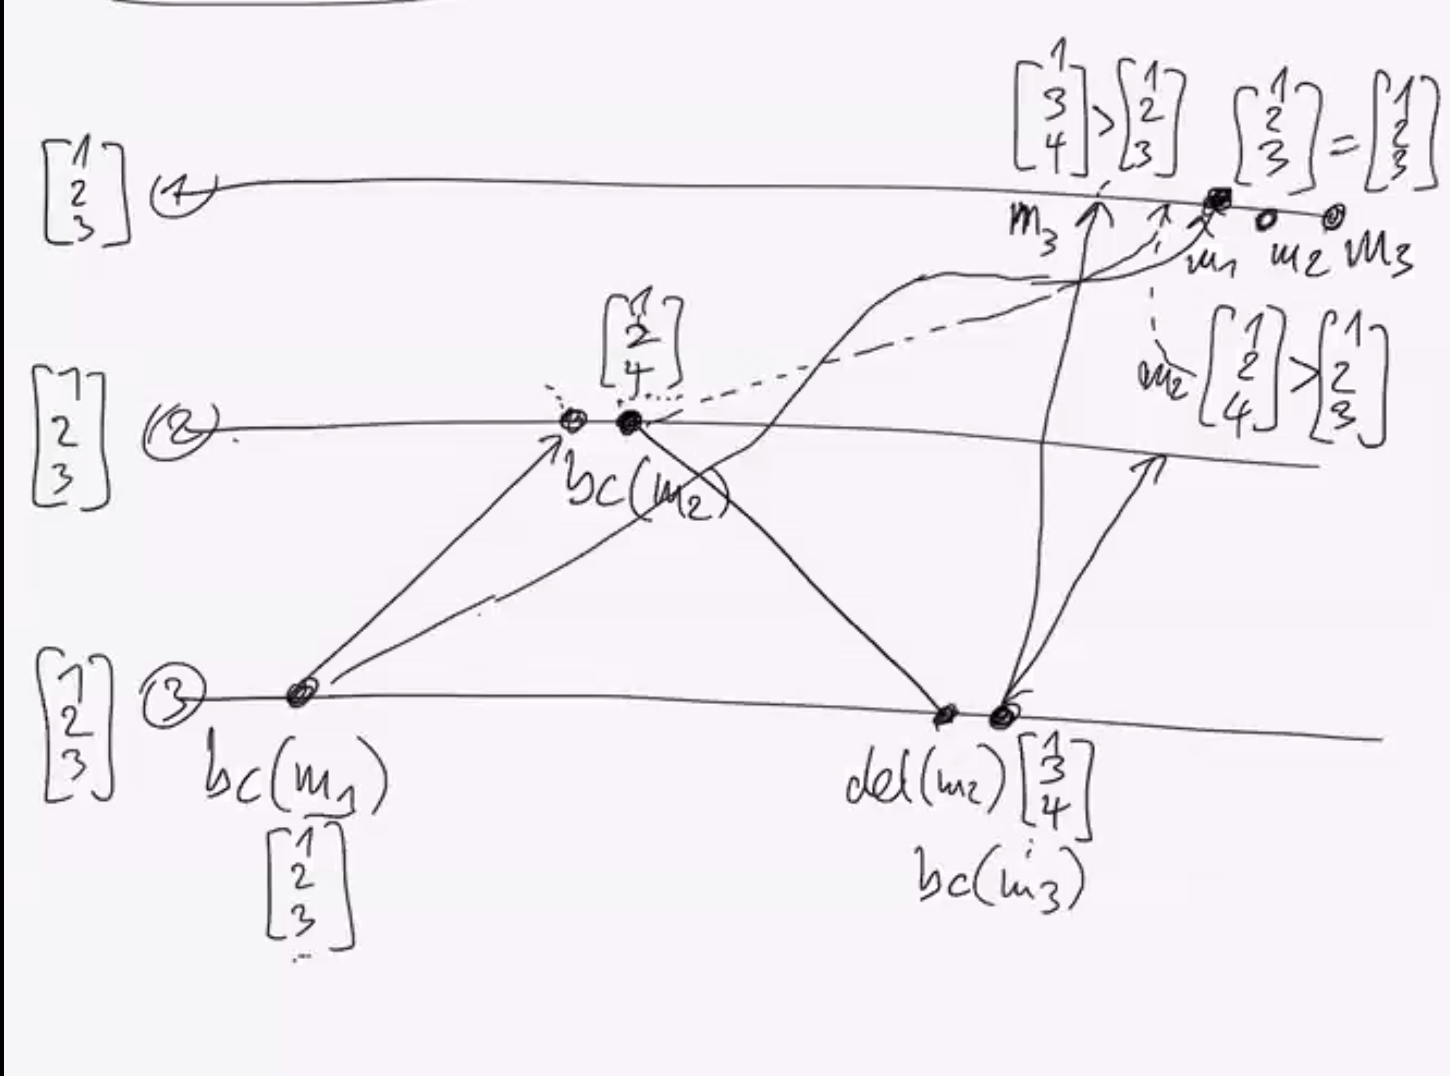 [1 3 4] > [1 2 3]
[1 2 3] = [1 2 3]
[1 2 3]
1
m3
m1 m2 m3
[1 2 4]
m2 [1 2 4] > [1 2 3]
[1 2 3]
2
bc(m2)
[1 2 3]
3
bc(m1)
[1 2 3]
del(m2) [1 3 4]
bc(m3)